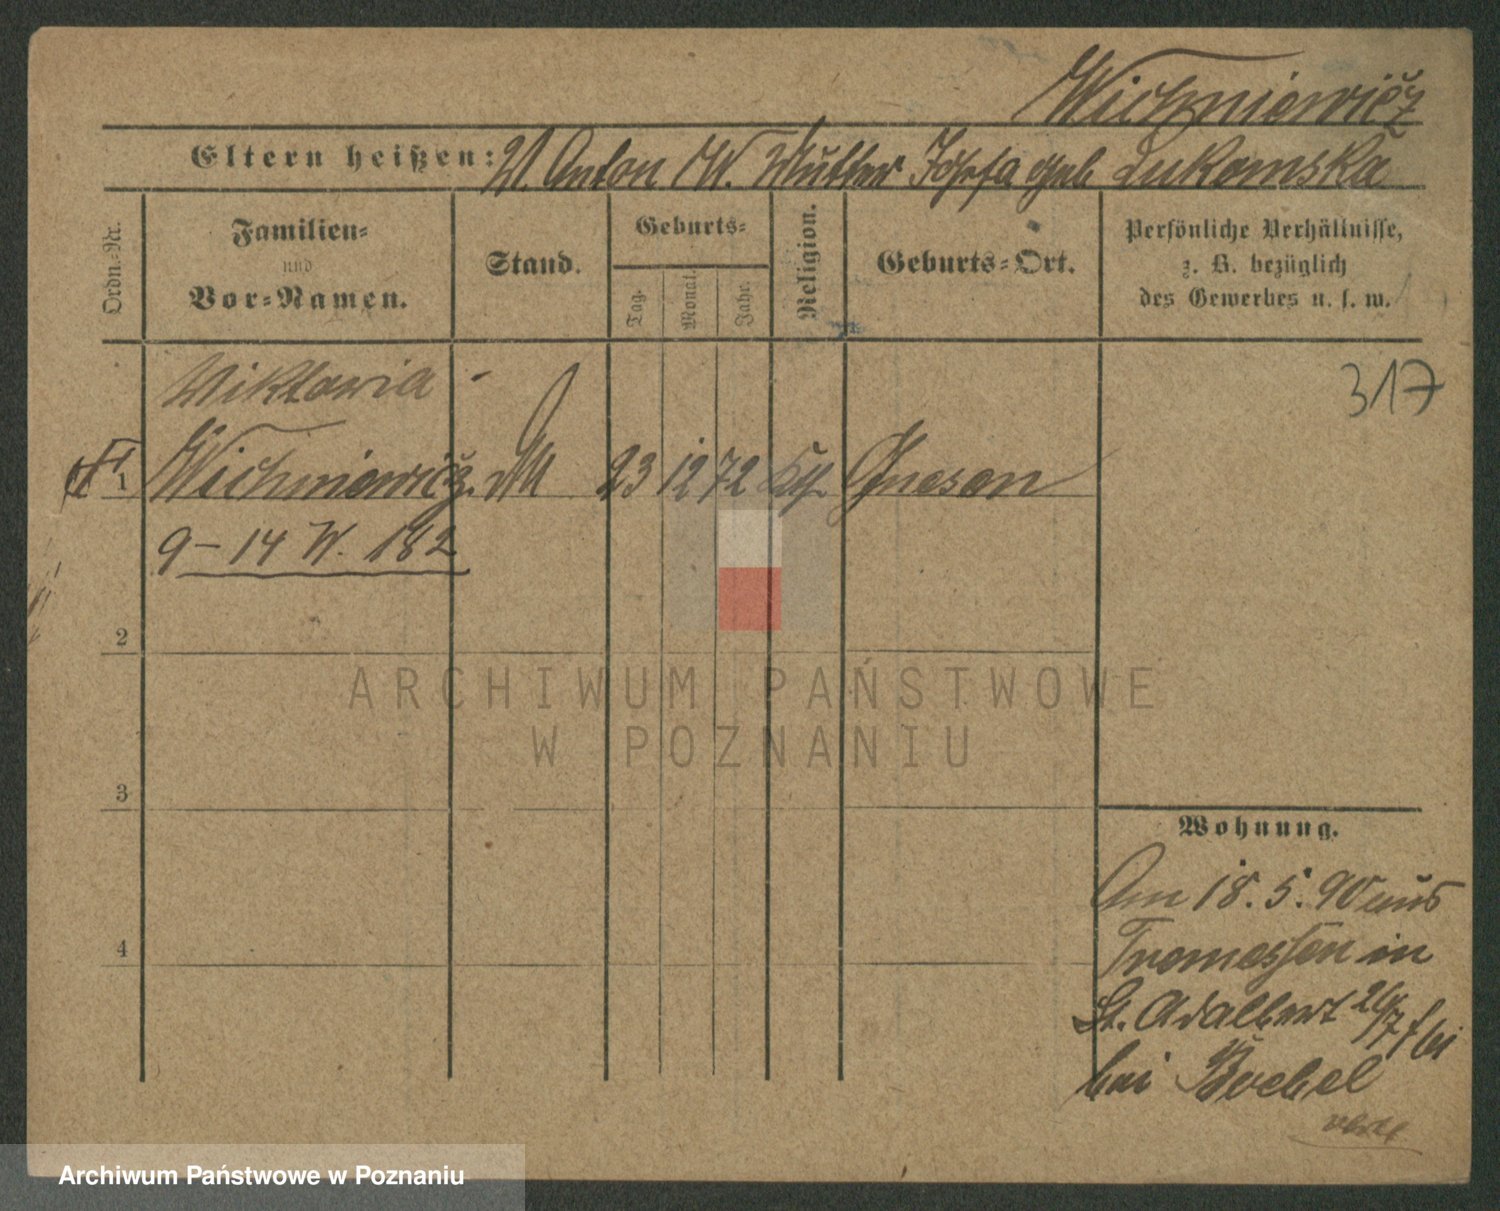 Wichniewicz
Eltern heißen: V. Anton W. Mutter Josefa geb Lukomska
Ordn.-Nr.
Familien-
und
Vor-Namen.
Stand.
Geburts-
Tag.
Monat.
Jahr.
Religion.
Geburts-Ort.
Persönliche Verhältnisse,
z. B. bezüglich
des Gewerbes u. s. w.
317
Viktoria -
1 Wichniewicz. 23 12 72 Gnesen
9-14 W. 182
2
3
4
Wohnung.
Am 18. 5. 90 aus
Tremessen in
St. Adalbert 26/7
bei Boebel
ARCHIWUM PAŃSTWOWE
W POZNANIU
Archiwum Państwowe w Poznaniu